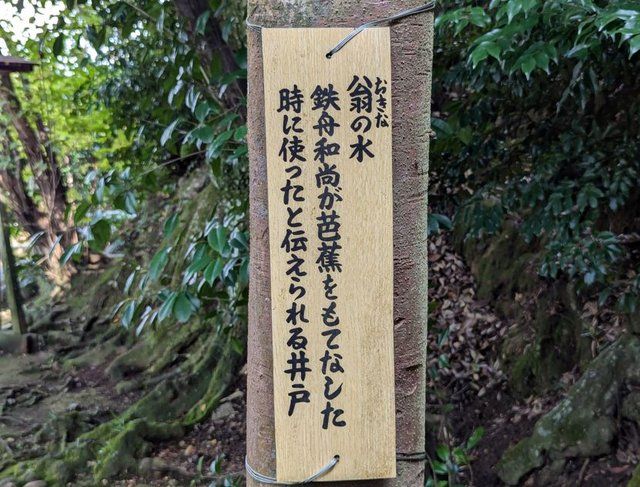 翁の水
おきな
鉄舟和尚が芭蕉をもてなした
時に使ったと伝えられる井戸